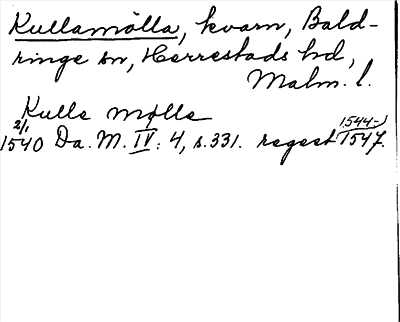 Kullamölla, kvarn, Bald-
ringe sn, Herrestads hd,
Malm. l.
Kulle Mølle
2/1
1540 Da. M. IV: 4, s. 331. regest 1544-) 1547.